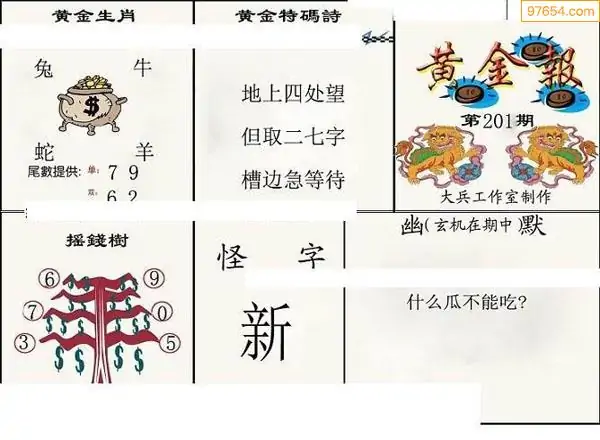 97654.com
黄金生肖
兔 牛
$
蛇 羊
尾數提供: 单: 7 9
双: 6 2
黄金特碼詩
地上四处望
但取二七字
槽边急等待
黄金報
第201期
大兵工作室制作
摇錢樹
6 9
7 0
3 5
$ $ $ $ $ $ $ $ $ $ $ $
怪 字
新
幽(玄机在期中)默
什么瓜不能吃?